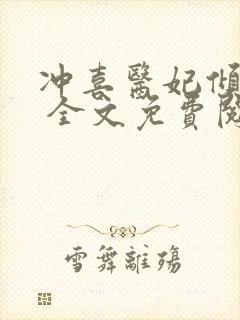 冲喜醫妃傾
全文免費閱
雪舞離殤